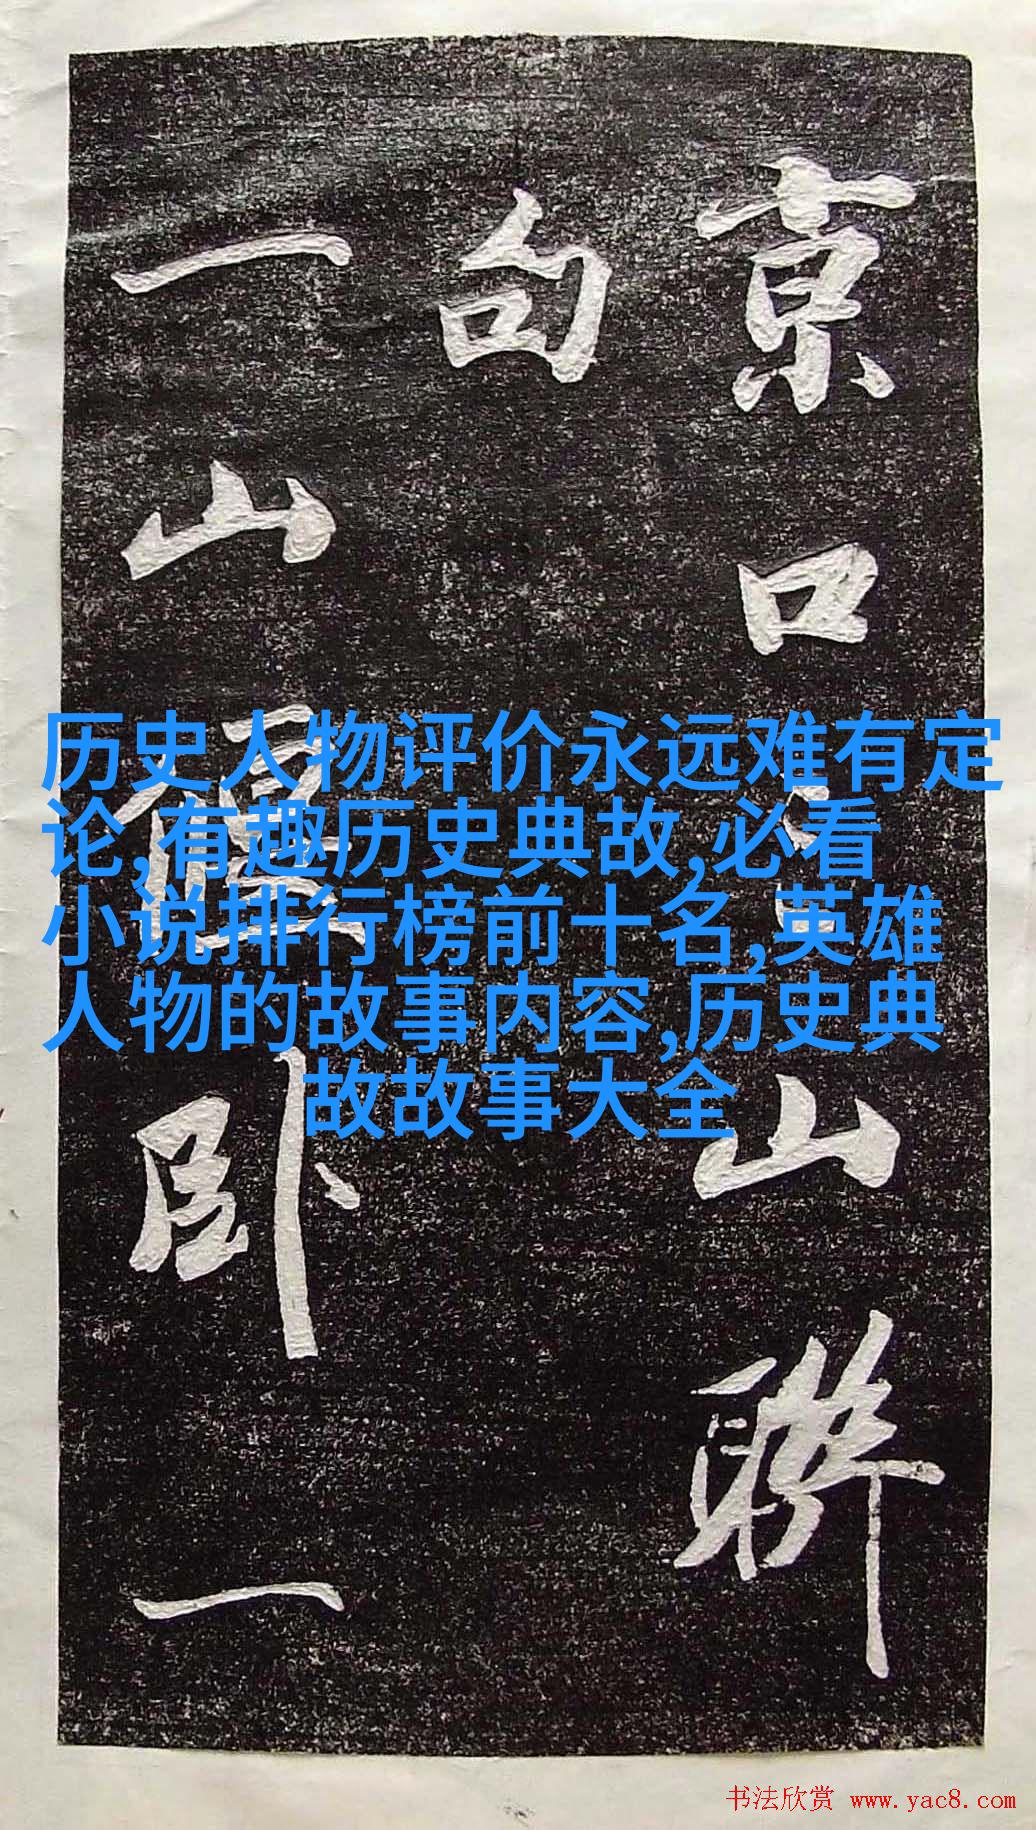 京口山聯
句
一山卧一
历史人物评价永远难有定
论,有趣历史典故,必看
小说排行榜前十名,英雄
人物的故事内容,历史典
故故事大全
书法欣赏 www.yac8.com